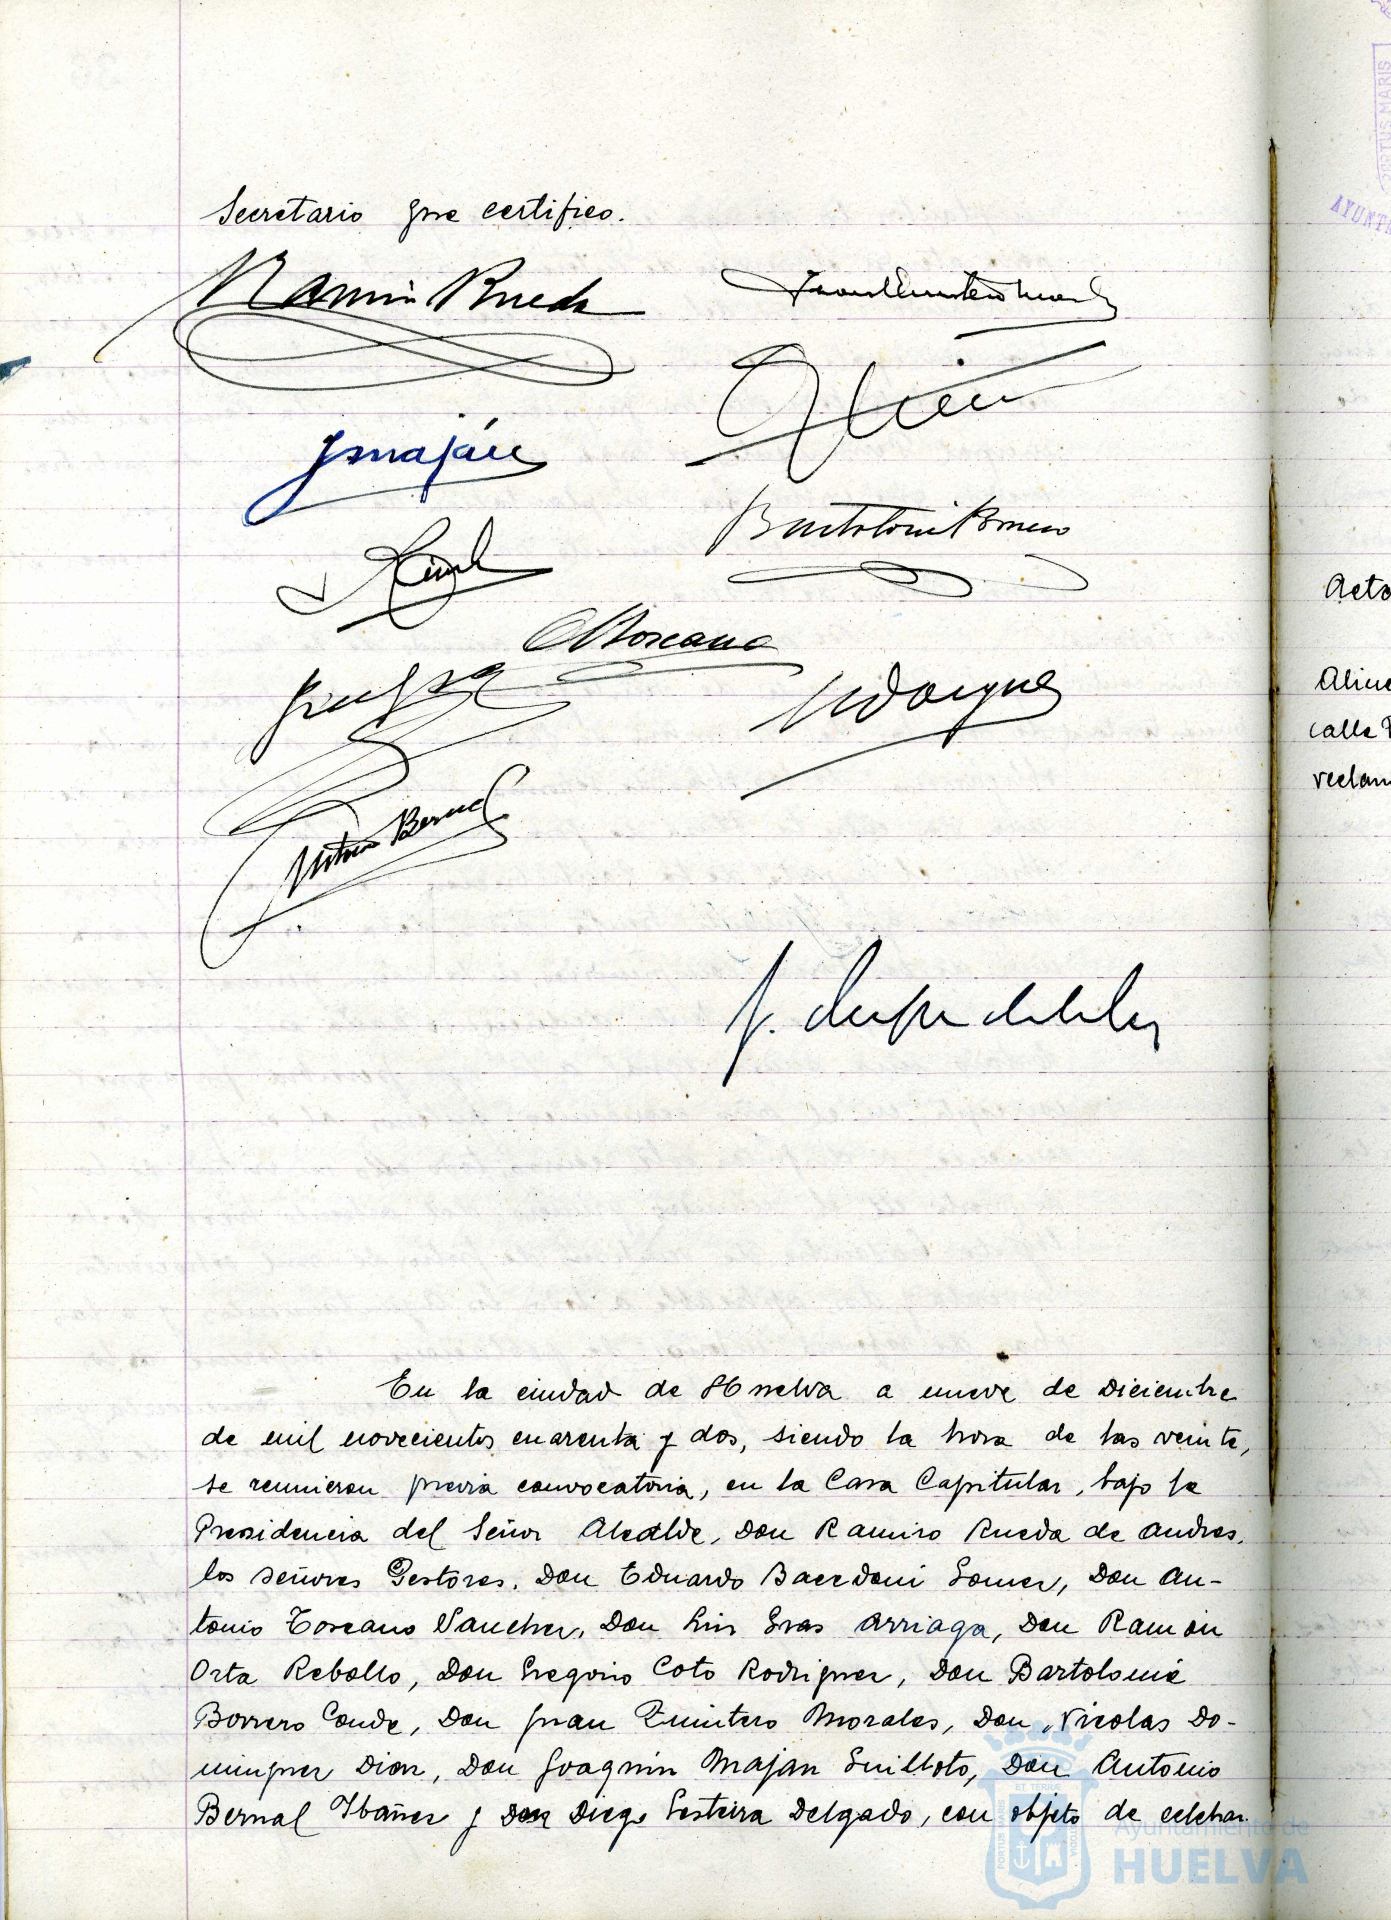 Secretario que certifico.
Ramiro Rueda
JMaján
Bartolomé Borrero
AToscano
NDomgues
Antonio Bernal
En la ciudad de Huelva a nueve de Diciembre
de mil novecientos cuarenta y dos, siendo la hora de las veinte,
se reunieron previa convocatoria, en la Casa Capitular, bajo la
Presidencia del Señor Alcalde, Don Ramiro Rueda de Andres,
los señores Gestores, Don Eduardo Bacedoni Gomez, Don An-
tonio Toscano Sanchez, Don Luis Gras Arriaga, Don Ramón
Orta Rebollo, Don Gregorio Coto Rodriguez, Don Bartolomé
Borrero Conde, Don Juan Quintero Morales, Don Nicolas Do-
minguez Diaz, Don Joaquin Majan Guilloto, Don Antonio
Bernal Ibañez y Don Diego Sesteira Delgado, con objeto de celebrar
Acto
calle
reclam
PORTUS MARIS
AYUNTA
Ayuntamiento de
HUELVA